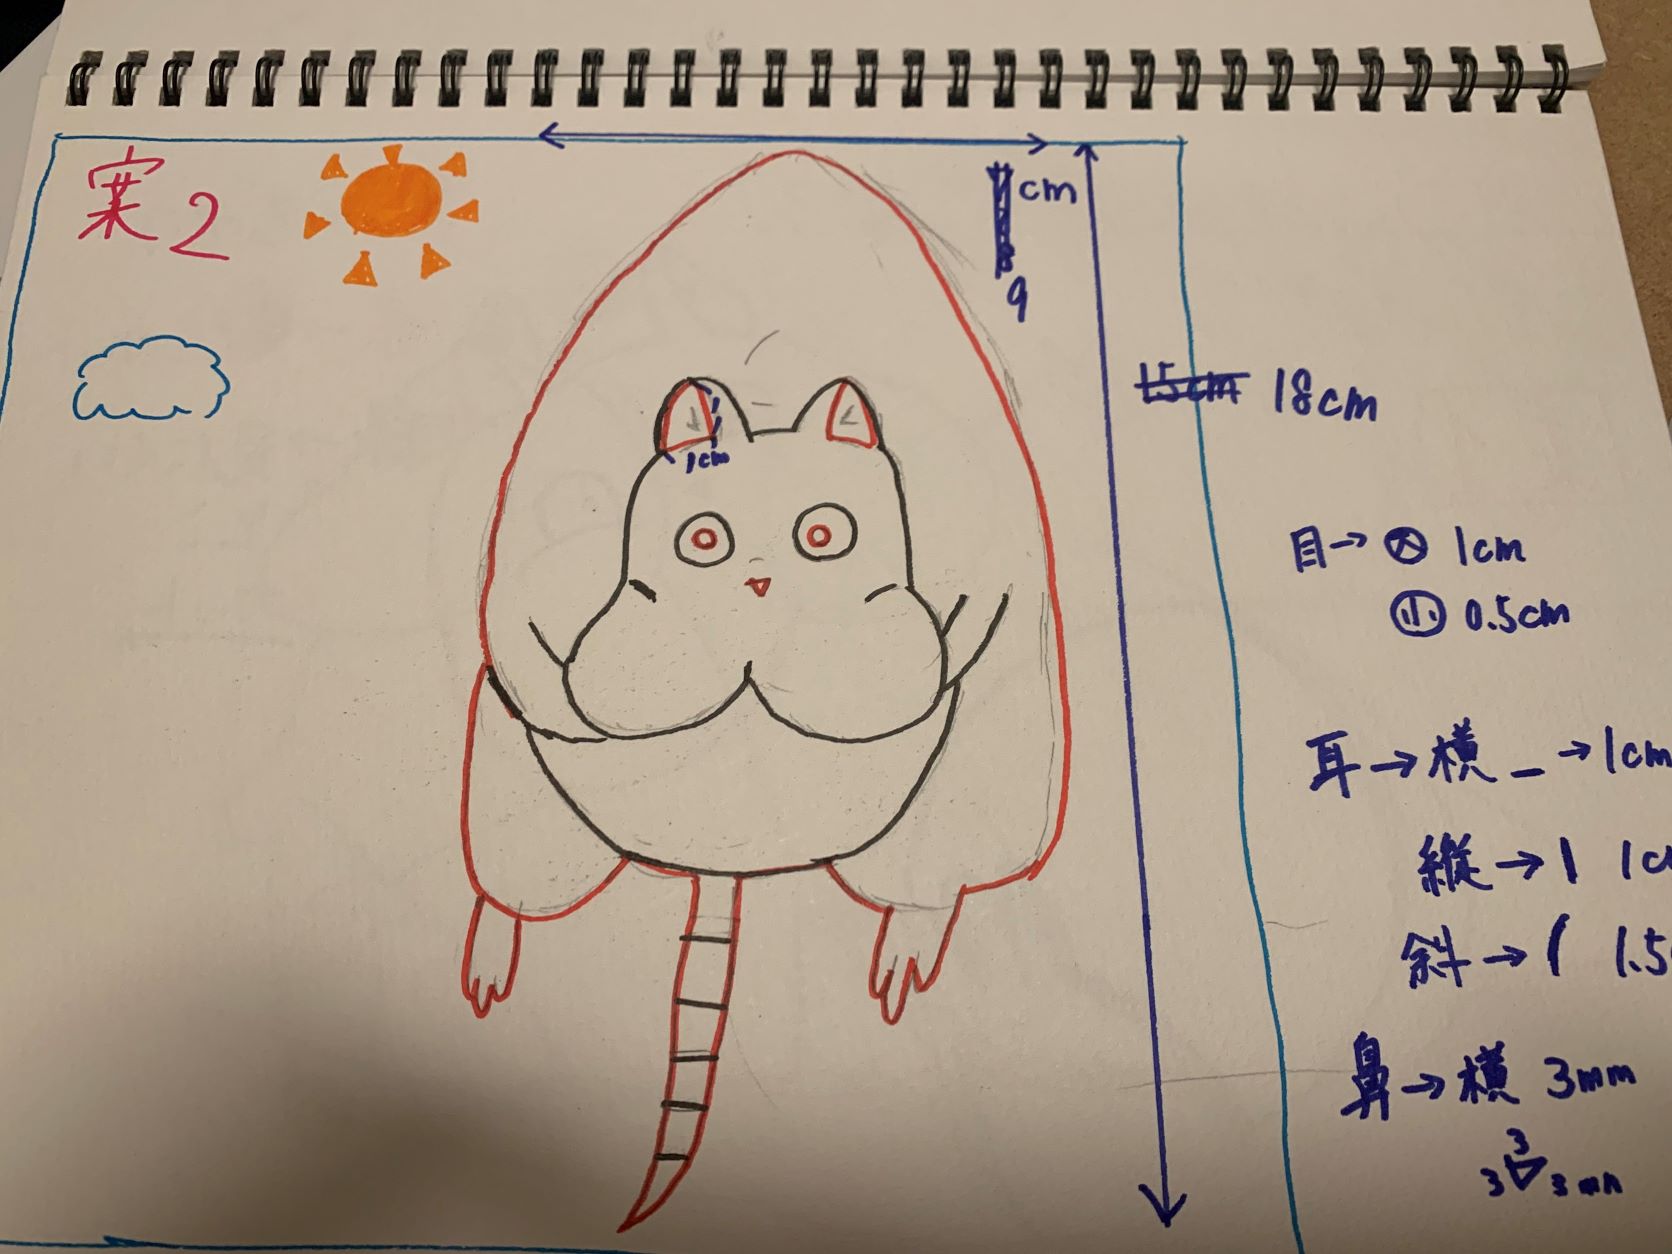 案2
cm
9
15cm 18cm
1cm
目→大 1cm
小 0.5cm
耳→横_→1cm
縦→| 1c
斜→( 1.5
鼻→横 3mm
3
3 3mm